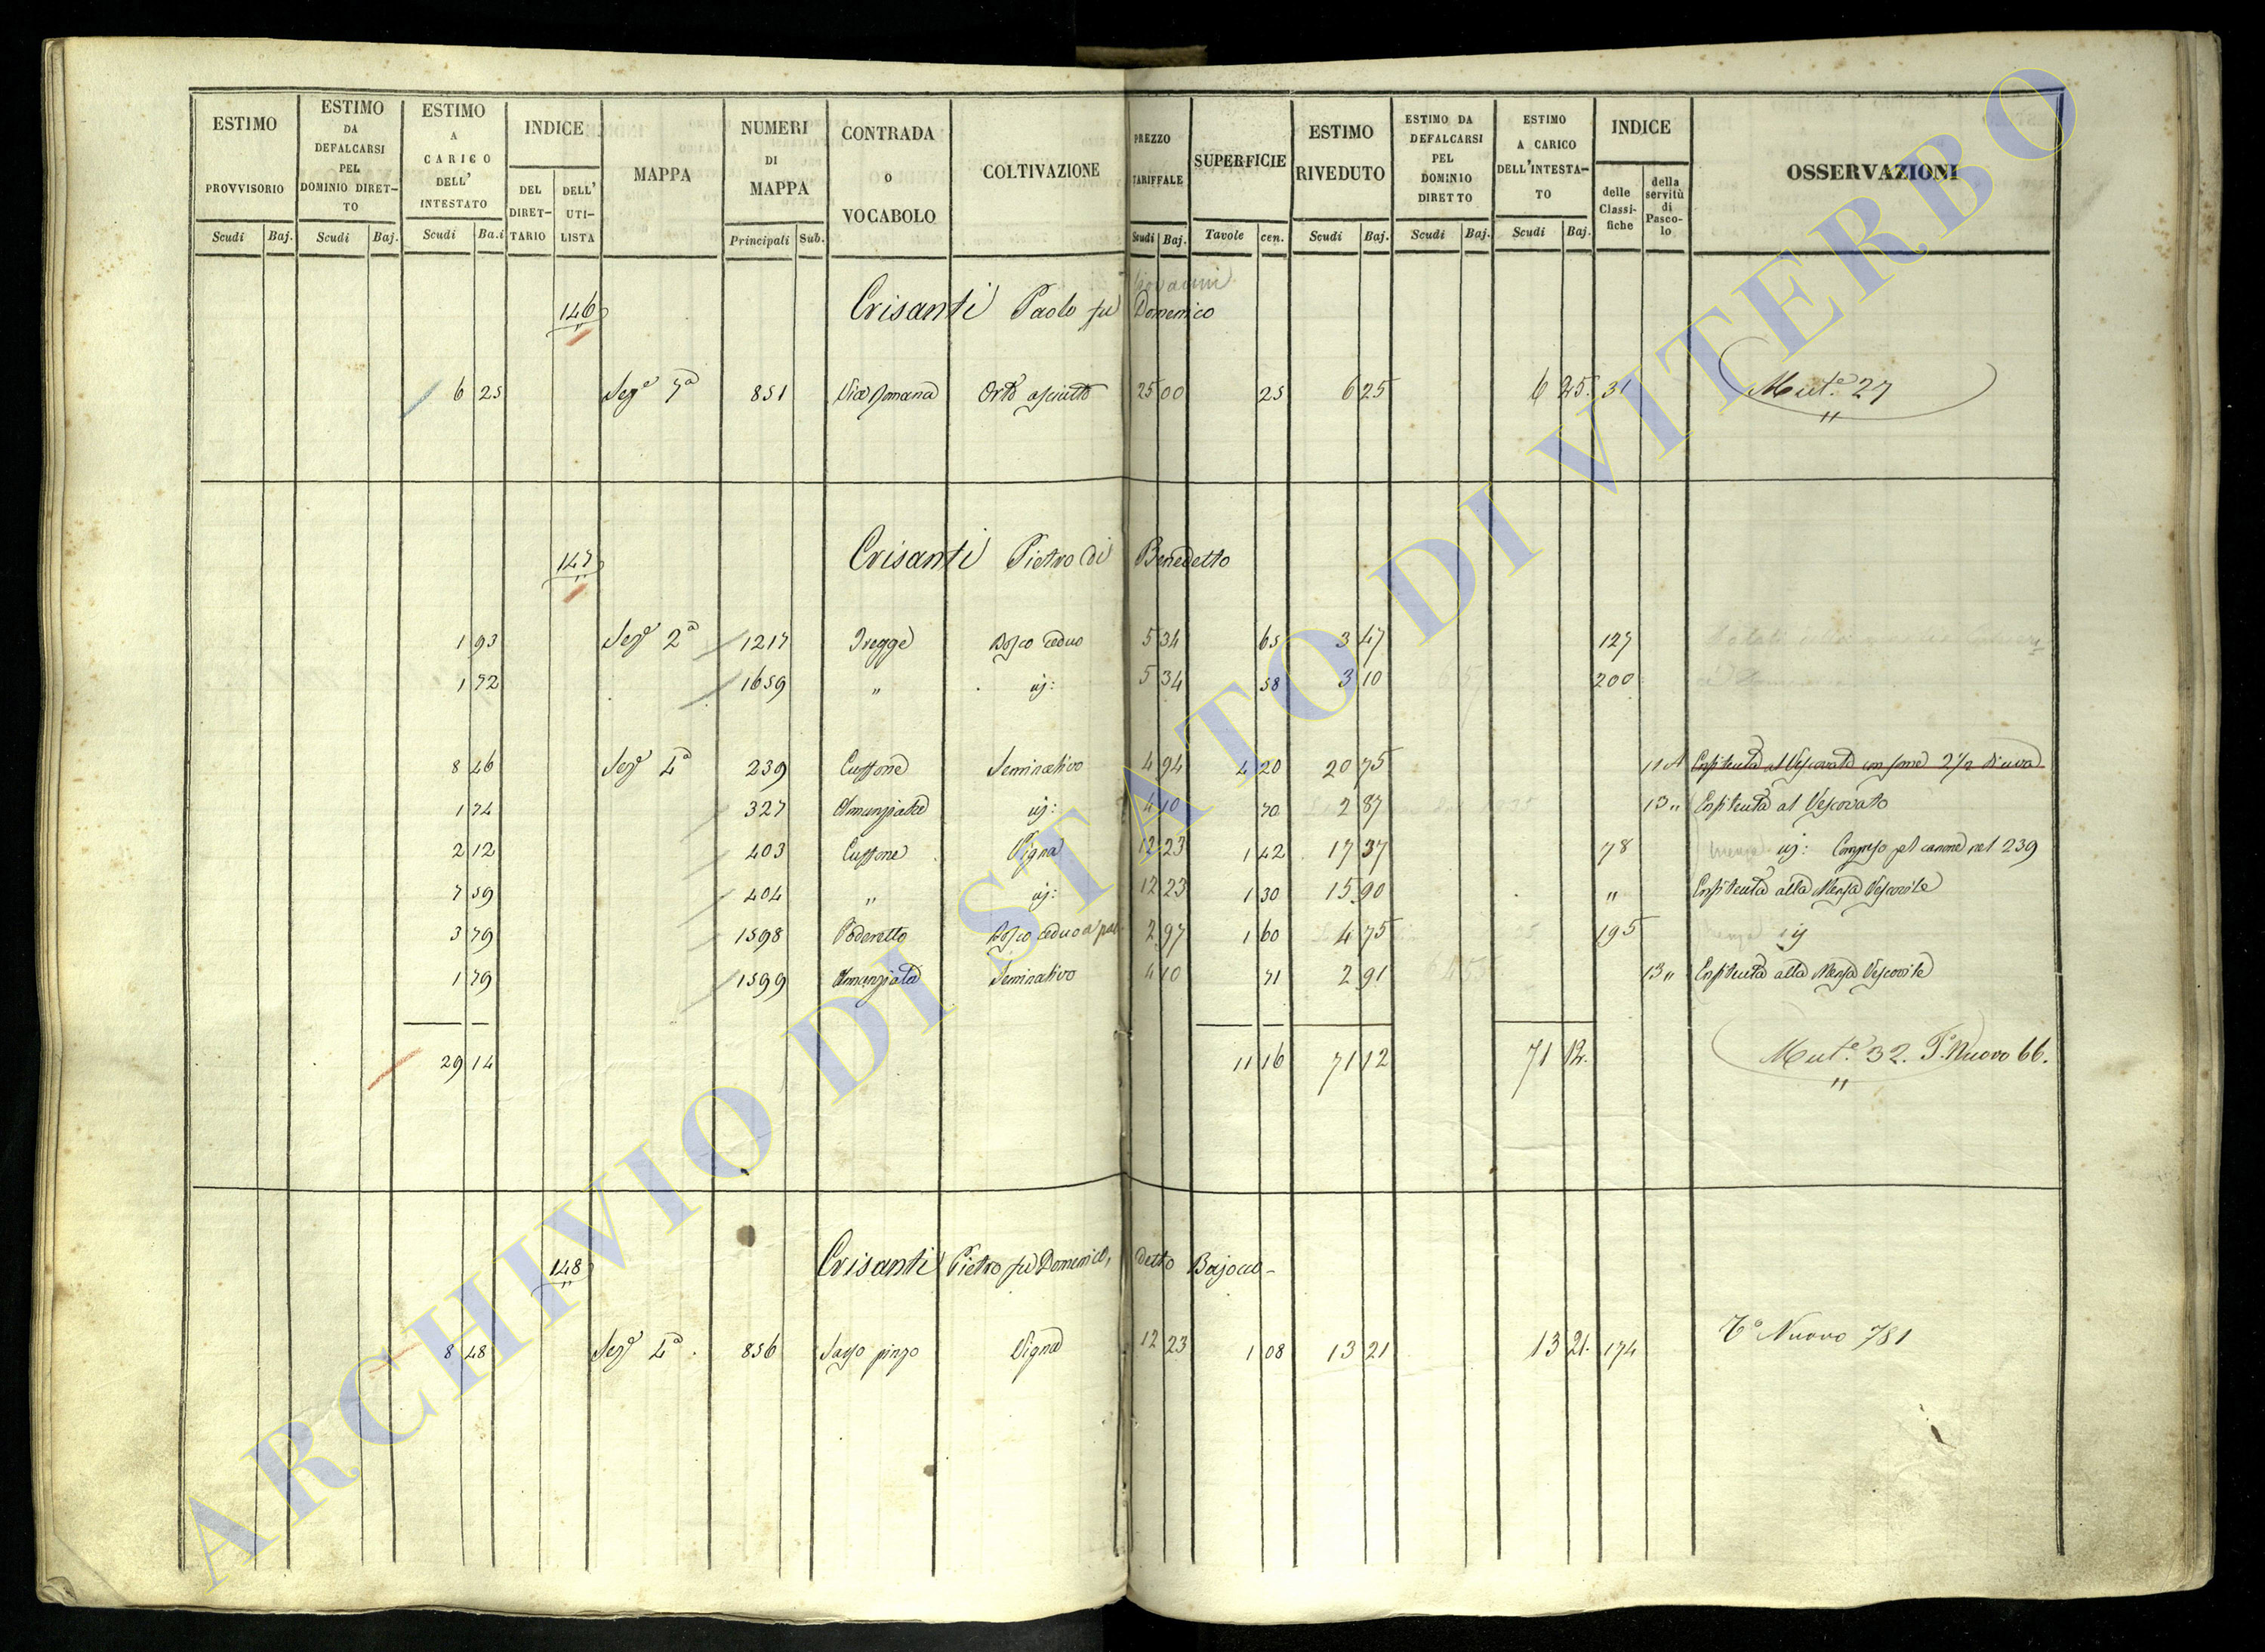 ESTIMO PROVVISORIO
ESTIMO DA DEFALCARSI PEL DOMINIO DIRETTO
ESTIMO A CARICO DELL' INTESTATO
INDICE
DEL DIRETTARIO
DELL' UTILISTA
MAPPA
NUMERI DI MAPPA
CONTRADA O VOCABOLO
COLTIVAZIONE
PREZZO TARIFFALE
SUPERFICIE
ESTIMO RIVEDUTO
ESTIMO DA DEFALCARSI PEL DOMINIO DIRETTO
ESTIMO A CARICO DELL'INTESTATO
INDICE
delle Classifiche
della servitù di Pascolo
OSSERVAZIONI
Scudi Baj. Scudi Baj. Scudi Ba.i Principali Sub. Scudi Baj. Tavole cen. Scudi Baj. Scudi Baj. Scudi Baj.
Giovanni
146 Crisanti Paolo fu Domenico
6 25 Sez.e 7a 851 Via Romana Orto asciutto 25 00 25 6 25 6 25. 31 Mut.e 27
147 Crisanti Pietro di Benedetto
1 93 Sez.e 2a 1217 Tregge Bosco ceduo 5 34 65 3 47 127
1 72 1659 " ij: 5 34 58 3 10 200
8 46 Sez.e 4a 239 Cuffone Seminativo 4 94 4 20 20 75 11 A Enfiteuta al Vescovato con some 2 1/2 di uva
1 74 327 Annunziata ij: 4 10 70 2 87 13 " Enfiteuta al Vescovato
2 12 403 Cuffone Vigna 12 23 1 42 17 37 78 ij: Compreso pel canone nel 239
7 59 404 " ij: 12 23 1 30 15 90 " Enfiteuta alla Mensa Vescovile
3 79 1598 Poderetto Bosco ceduo a pas. 2 97 1 60 4 75 195 ij
1 79 1599 Annunziata Seminativo 4 10 71 2 91 13 " Enfiteuta alla Mensa Vescovile
29 14 11 16 71 12 71 12. Mut.e 32. T.o Nuovo 66.
148 Crisanti Pietro fu Domenico, detto Bajocco-
8 48 Sez.e 4a. 856 Sasso pinzo Vigna 12 23 1 08 13 21 13 21. 174 T.o Nuovo 781
ARCHIVIO DI STATO DI VITERBO